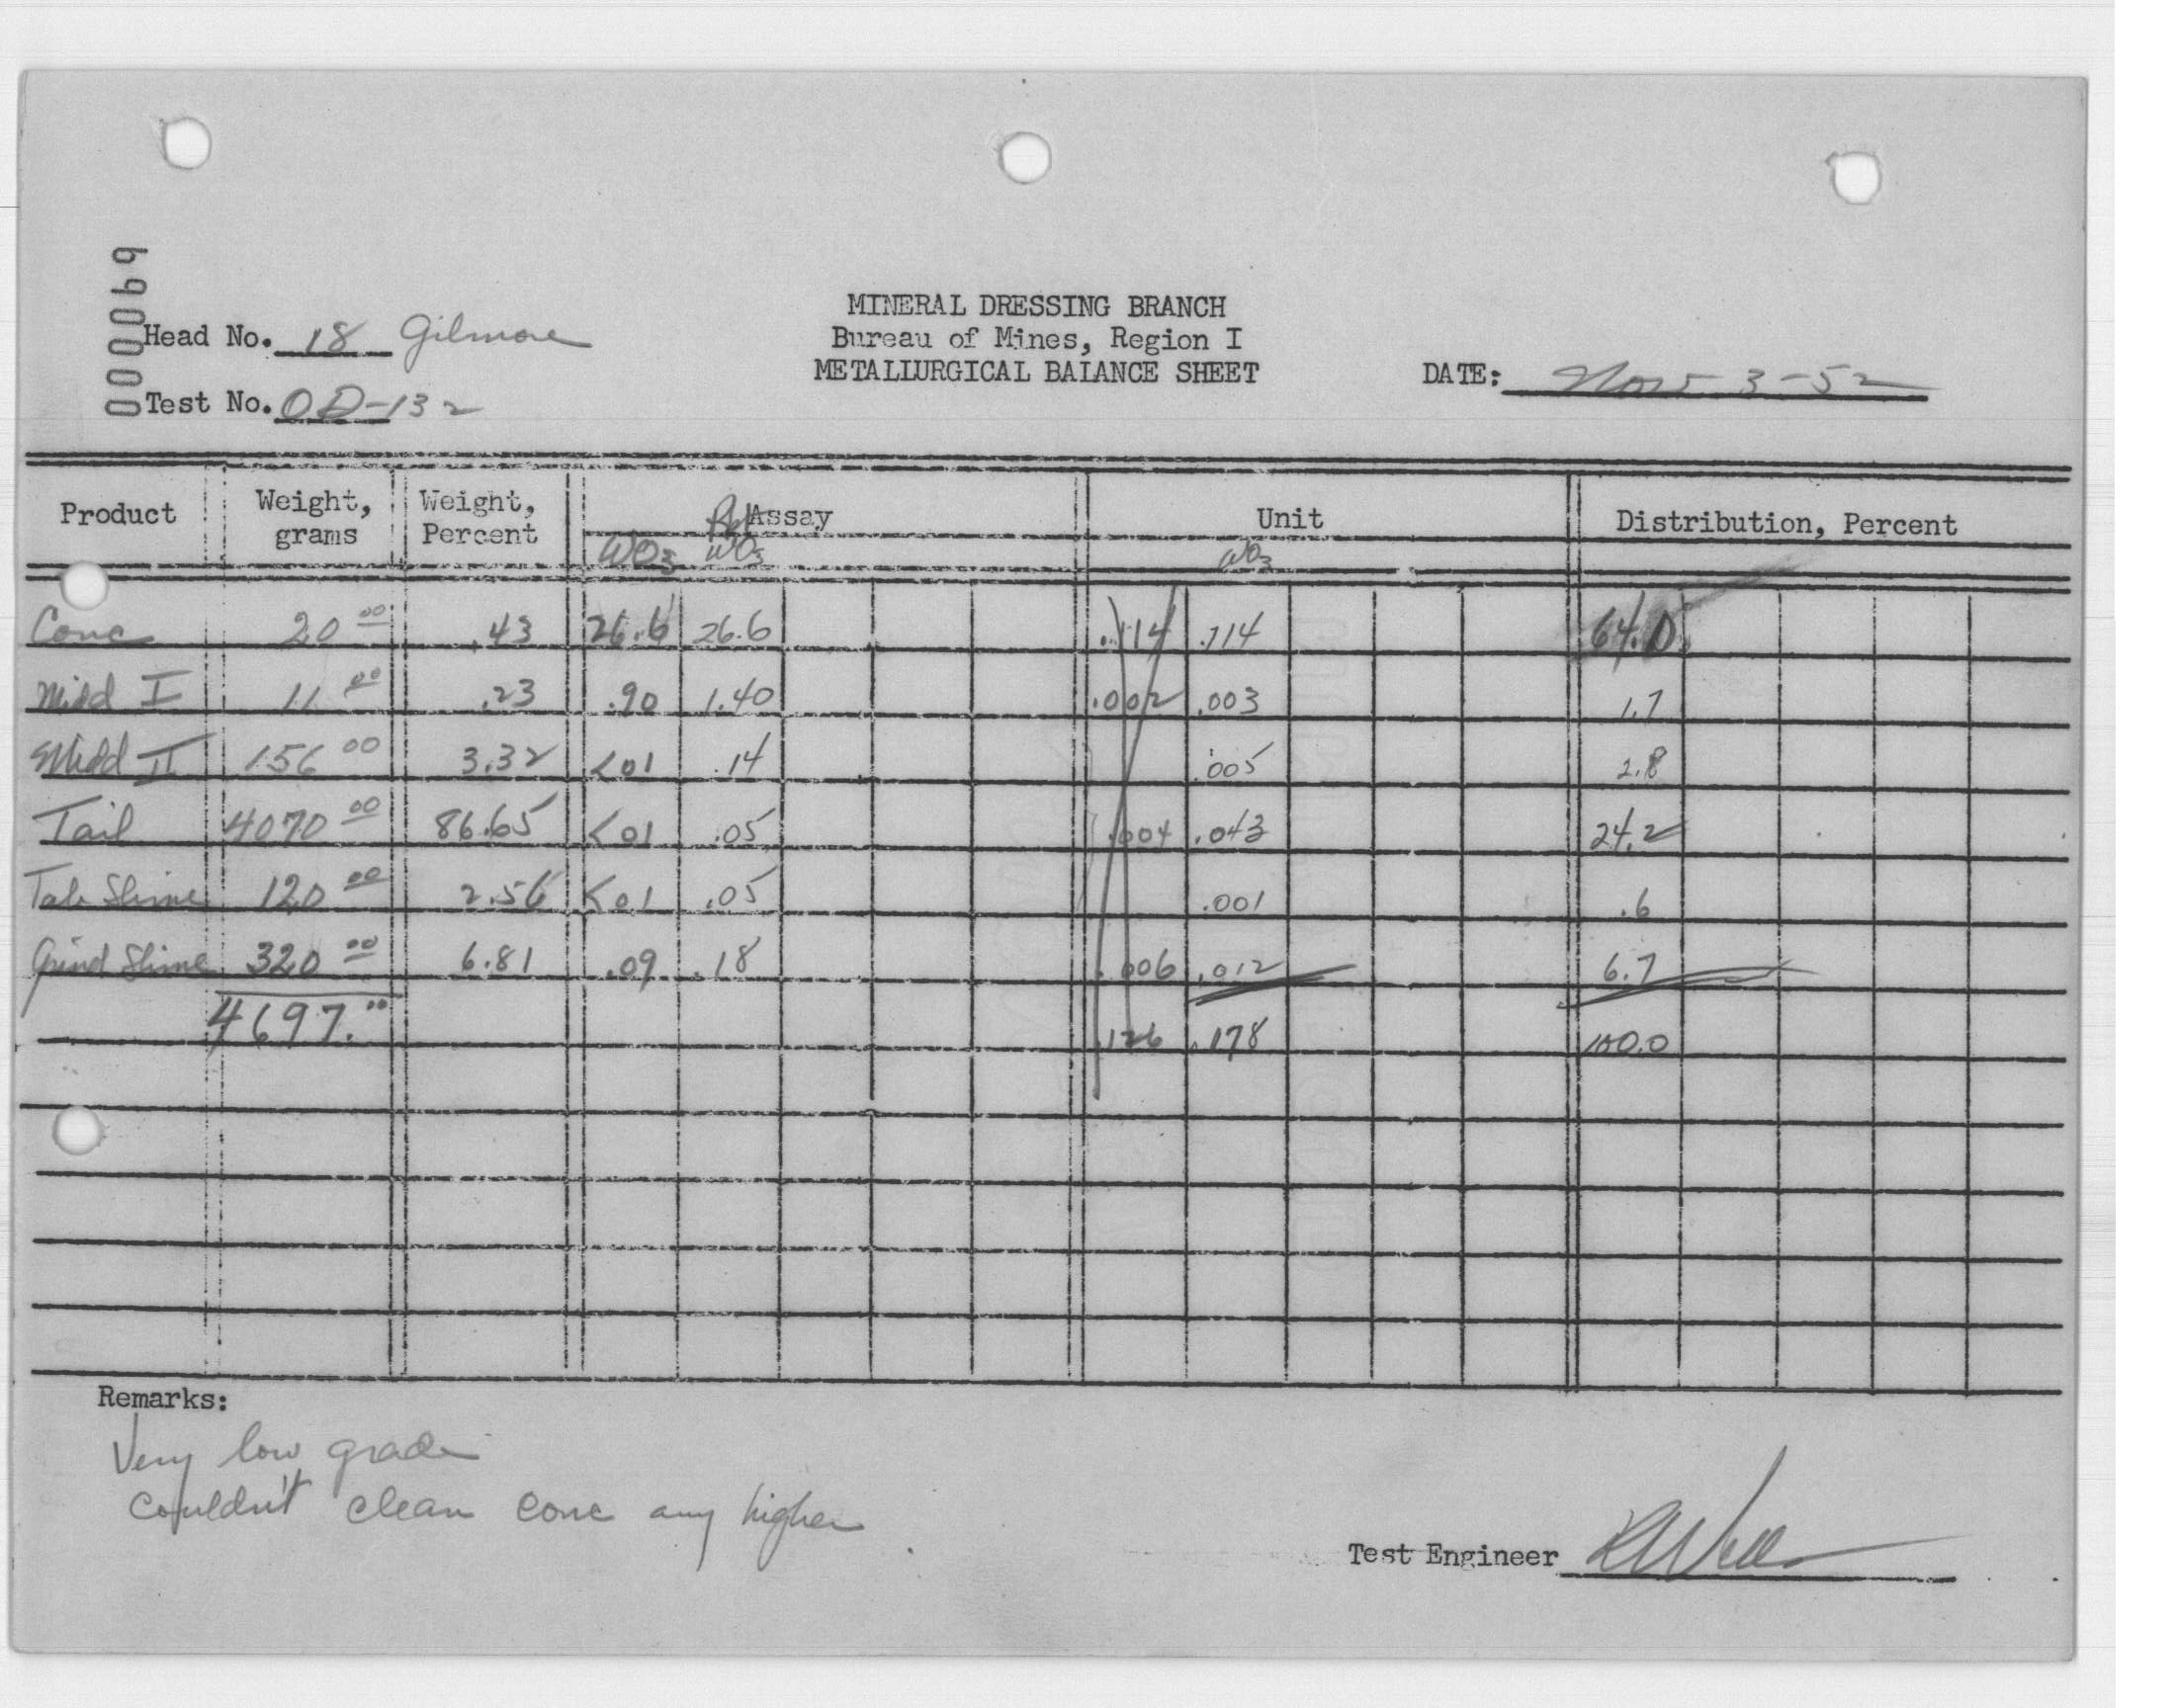 000069
MINERAL DRESSING BRANCH
Head No. 18 Gilmore
Bureau of Mines, Region I
METALLURGICAL BALANCE SHEET
DATE: Nov 3-52
Test No. OD-132
Product Weight, grams Weight, Percent Assay Unit Distribution, Percent
WO3 WO3 WO3
Conc 20 00 .43 26.6 26.6 .114 .114 64.0
Midd I 11 00 .23 .90 1.40 .002 .003 1.7
Midd II 156 00 3.32 <01 .14 .005 2.8
Tail 4070 00 86.65 <01 .05 .004 .043 24.2
Tab Slime 120 00 2.56 <01 .05 .001 .6
Grind Slime 320 00 6.81 .09 .18 .006 .012 6.7
4697. 00 .126 .178 100.0
Remarks:
Very low grade
Couldn't clean conc any higher
Test Engineer